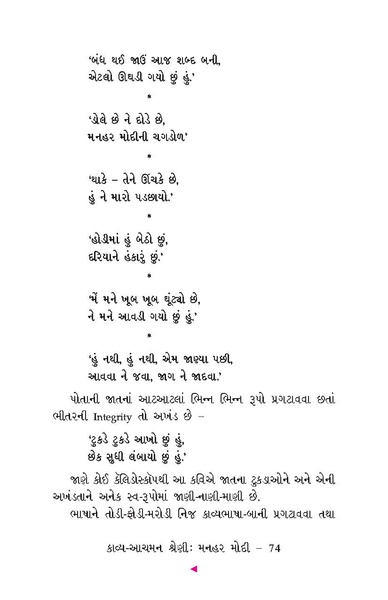 ‘બંધ થઈ જાઉં આજ શબ્દ બની,
એટલો ઊઘડી ગયો છું હું.’
*
‘ડોલે છે ને દોડે છે,
મનહર મોદીની ચગડોળ’
*
‘થાકે – તેને ઊંચકે છે,
હું ને મારો પડછાયો.’
*
‘હોડીમાં હું બેઠો છું,
દરિયાને હંકારું છું.’
*
‘મેં મને ખૂબ ખૂબ ઘૂંટ્યો છે,
ને મને આવડી ગયો છું હું.’
*
‘હું નથી, હું નથી, એમ જાણ્યા પછી,
આવવા ને જવા, જાગ ને જાદવા.’
પોતાની જાતનાં આટઆટલાં ભિન્ન ભિન્ન રૂપો પ્રગટાવવા છતાં
ભીતરની Integrity તો અખંડ છે –
‘ટુકડે ટુકડે આખો છું હું,
છેક સુધી લંબાયો છું હું.’
જાણે કોઈ કૅલિડોસ્કૉપથી આ કવિએ જાતના ટુકડાઓને અને એની
અખંડતાને અનેક સ્વ-રૂપોમાં જાણી-નાણી-માણી છે.
ભાષાને તોડી-ફોડી-મરોડી નિજ કાવ્યભાષા-બાની પ્રગટાવવા તથા
કાવ્ય-આચમન શ્રેણીઃ મનહર મોદી – 74